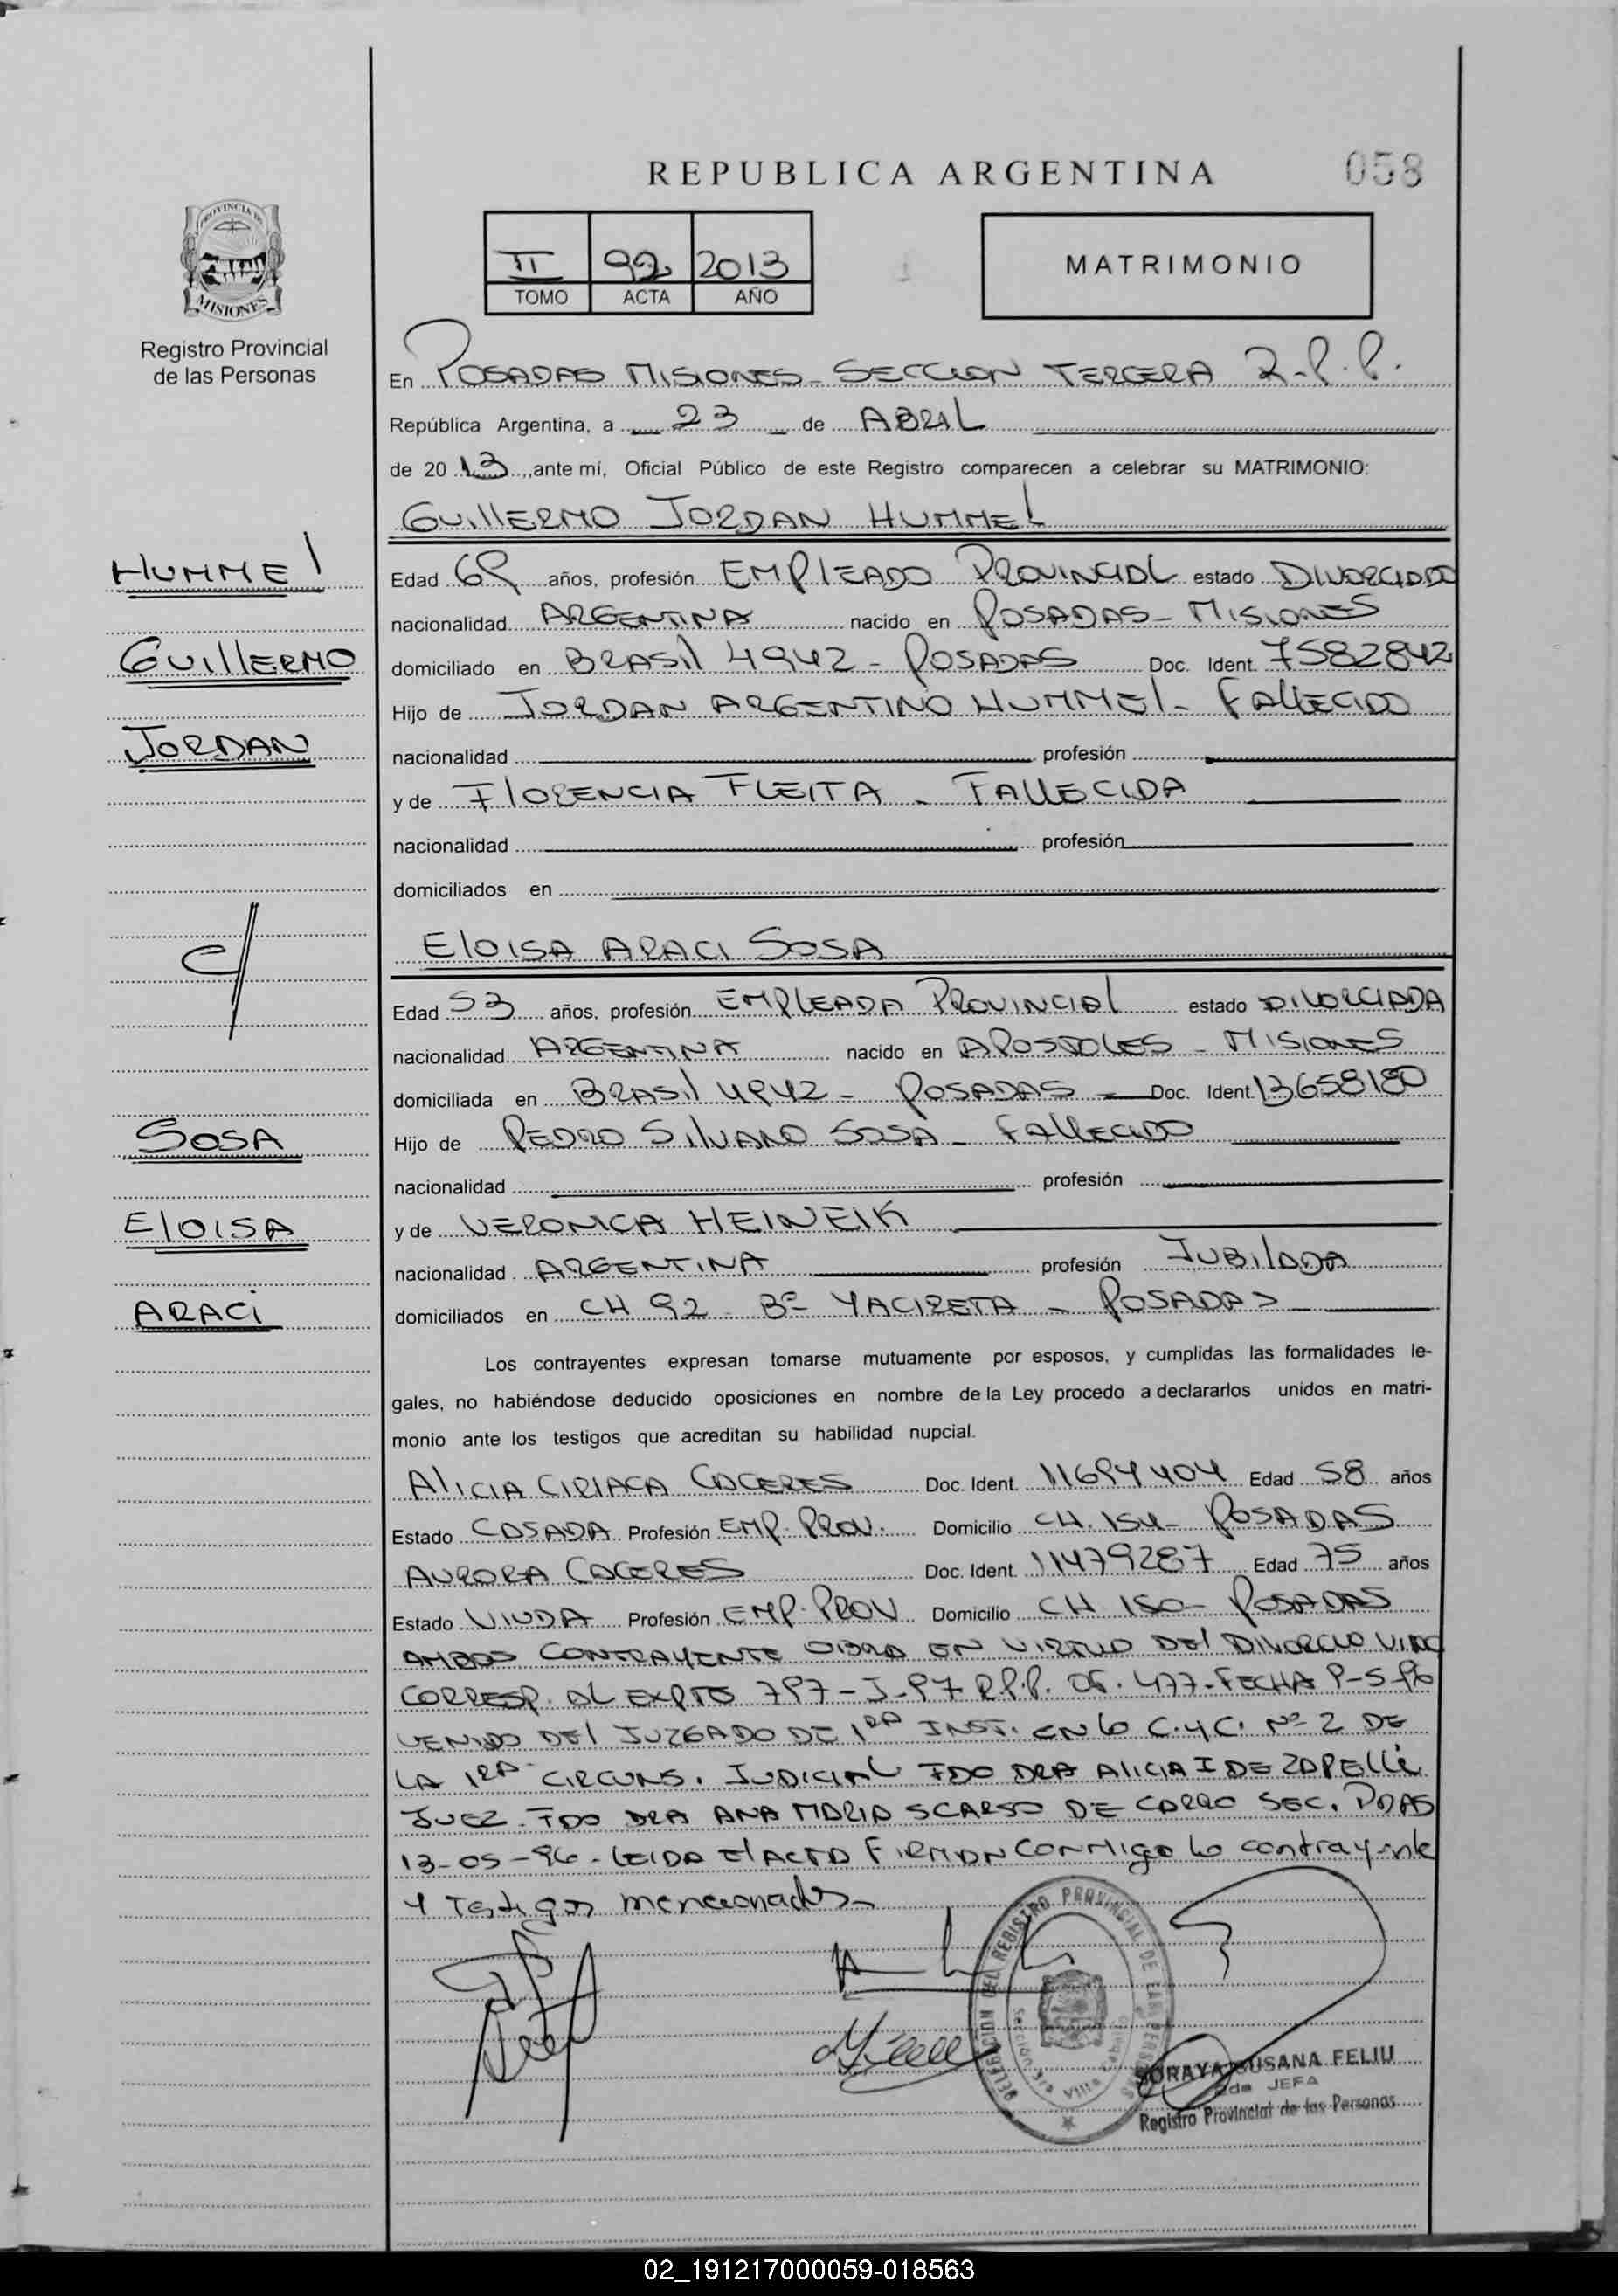 058
REPUBLICA ARGENTINA
PROVINCIA DE
MISIONES
Registro Provincial
de las Personas
II 92 2013
TOMO ACTA AÑO
MATRIMONIO
En POSADAS MISIONES - SECCION TERCERA R.P.P.
República Argentina, a 23 de ABRIL
de 2013, ante mí, Oficial Público de este Registro comparecen a celebrar su MATRIMONIO:
GUILLERMO JORDAN HUMMEL
HUMMEL
Edad 69 años, profesión EMPLEADO PROVINCIAL estado DIVORCIADO
nacionalidad ARGENTINA nacido en POSADAS - MISIONES
GUILLERMO
domiciliado en BRASIL 4942 - POSADAS Doc. Ident. 7582842
Hijo de JORDAN ARGENTINO HUMMEL - FALLECIDO
JORDAN
nacionalidad profesión
y de FLORENCIA FLEITA - FALLECIDA
nacionalidad profesión
domiciliados en
c/
ELOISA ARACI SOSA
Edad 53 años, profesión EMPLEADA PROVINCIAL estado DIVORCIADA
nacionalidad ARGENTINA nacido en APOSTOLES - MISIONES
domiciliada en BRASIL 4942 - POSADAS - Doc. Ident. 13658180
SOSA
Hijo de PEDRO SILVANO SOSA - FALLECIDO
nacionalidad profesión
ELOISA
y de VERONICA HEINEIK
nacionalidad ARGENTINA profesión JUBILADA
ARACI
domiciliados en CH 92 - Bº YACIRETA - POSADAS
Los contrayentes expresan tomarse mutuamente por esposos, y cumplidas las formalidades le-
gales, no habiéndose deducido oposiciones en nombre de la Ley procedo a declararlos unidos en matri-
monio ante los testigos que acreditan su habilidad nupcial.
ALICIA CIRIACA CACERES Doc. Ident. 11694404 Edad 58 años
Estado CASADA Profesión EMP. PROV. Domicilio CH. 154 - POSADAS
AURORA CACERES Doc. Ident. 11479287 Edad 75 años
Estado VIUDA Profesión EMP. PROV Domicilio CH 150 - POSADAS
AMBOS CONTRAYENTE OBRA EN VIRTUD DEL DIVORCIO VINC
CORRESP. AL EXPTE 797-J-97 R.P.P. OF. 477 - FECHA 9-5-96
VENIDO DEL JUZGADO DE 1RA INST. EN lo C.y C. Nº 2 DE
LA 1RA CIRCUNS. JUDICIAL FDO DRA ALICIA I DE ZAPELLI
JUEZ - FDO DRA ANA MARIA SCARSO DE CARRO SEC. PDAS
13-05-96 - LEIDA El ACTA FIRMAN CONMIGO lo contrayente
y Testigos mencionados -
DELEGACION DEL REGISTRO PROVINCIAL DE LAS PERSONAS
SORAYA SUSANA FELIU
2da JEFA
Registro Provincial de las Personas
02_191217000059-018563